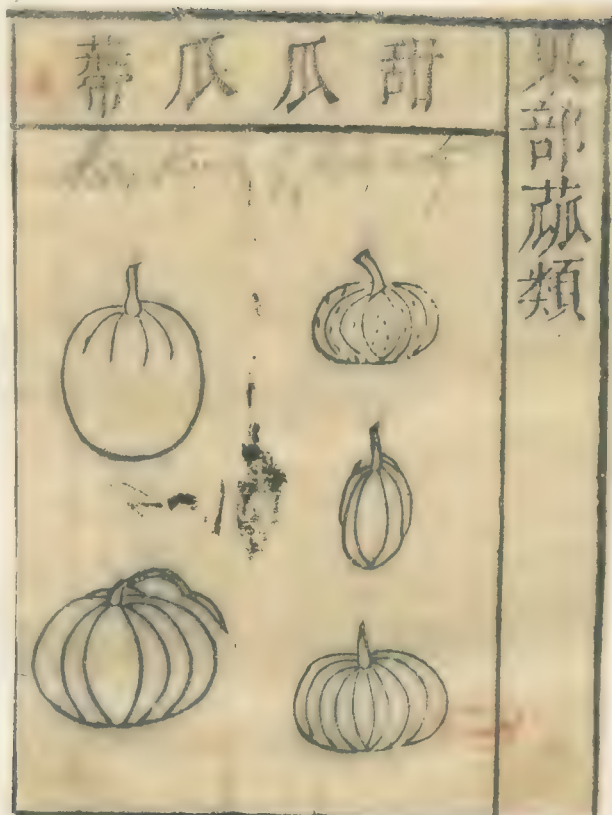 果部蓏類
甜瓜瓜蒂